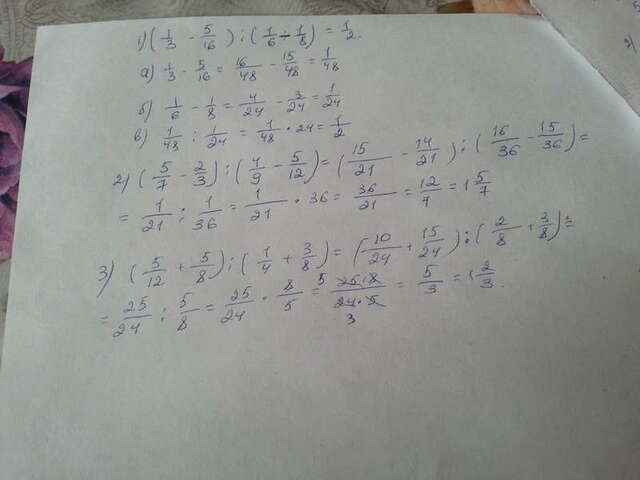 1) (1/3 - 5/16) : (1/6 - 1/8) = 1/2.
а) 1/3 - 5/16 = 16/48 - 15/48 = 1/48
б) 1/6 - 1/8 = 4/24 - 3/24 = 1/24
в) 1/48 : 1/24 = 1/48 · 24 = 1/2
2) (5/7 - 2/3) : (4/9 - 5/12) = (15/21 - 14/21) : (16/36 - 15/36) =
= 1/21 : 1/36 = 1/21 · 36 = 36/21 = 12/7 = 1 5/7
3) (5/12 + 5/8) : (1/4 + 3/8) = (10/24 + 15/24) : (2/8 + 3/8) =
= 25/24 : 5/8 = 25/24 · 8/5 = 5 25·8/24·5 3 = 5/3 = 1 2/3.